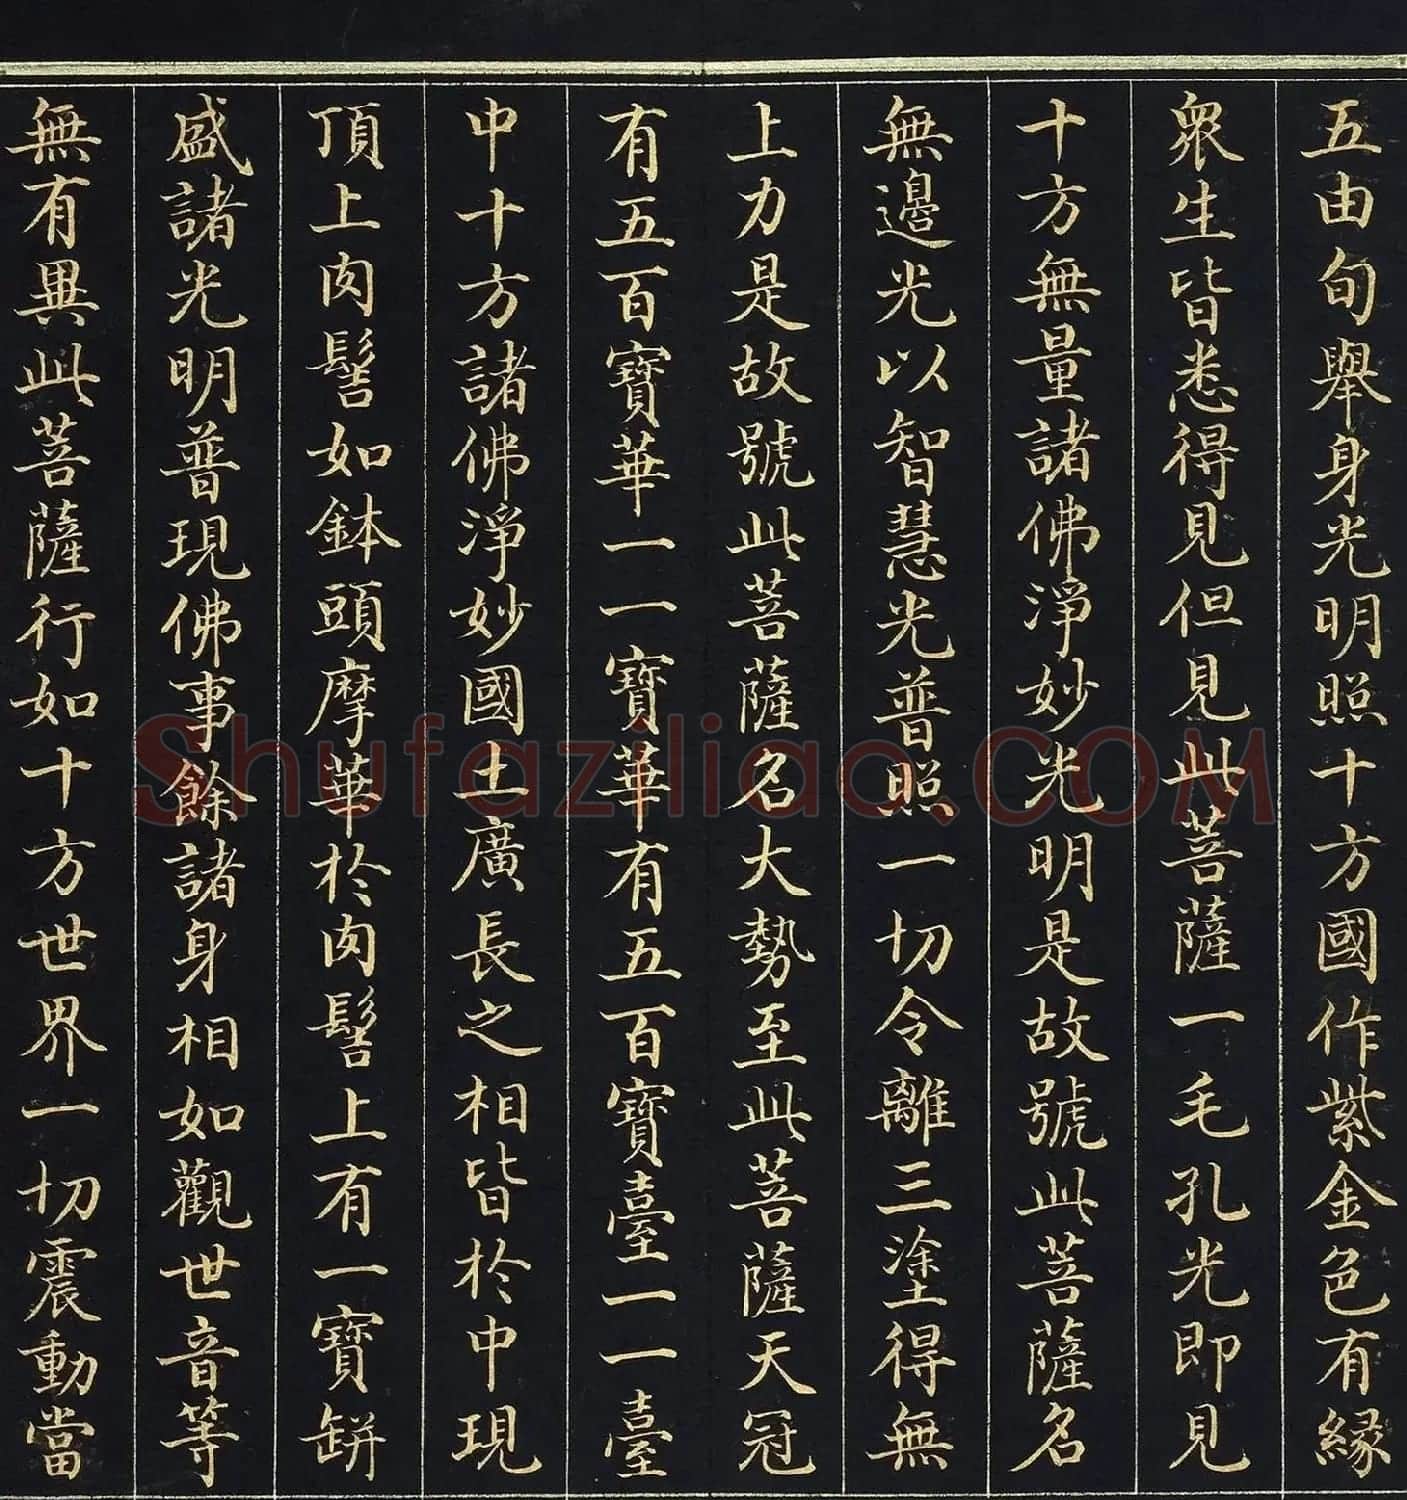 五由旬舉身光明照十方國作紫金色有緣
衆生皆悉得見但見此菩薩一毛孔光即見
十方無量諸佛淨妙光明是故號此菩薩名
無邊光以智慧光普照一切令離三塗得無
上力是故號此菩薩名大勢至此菩薩天冠
有五百寶華一一寶華有五百寶臺一一臺
中十方諸佛淨妙國土廣長之相皆於中現
頂上肉髻如鉢頭摩華於肉髻上有一寶缾
盛諸光明普現佛事餘諸身相如觀世音等
無有異此菩薩行如十方世界一切震動當
Shufaziliao.COM